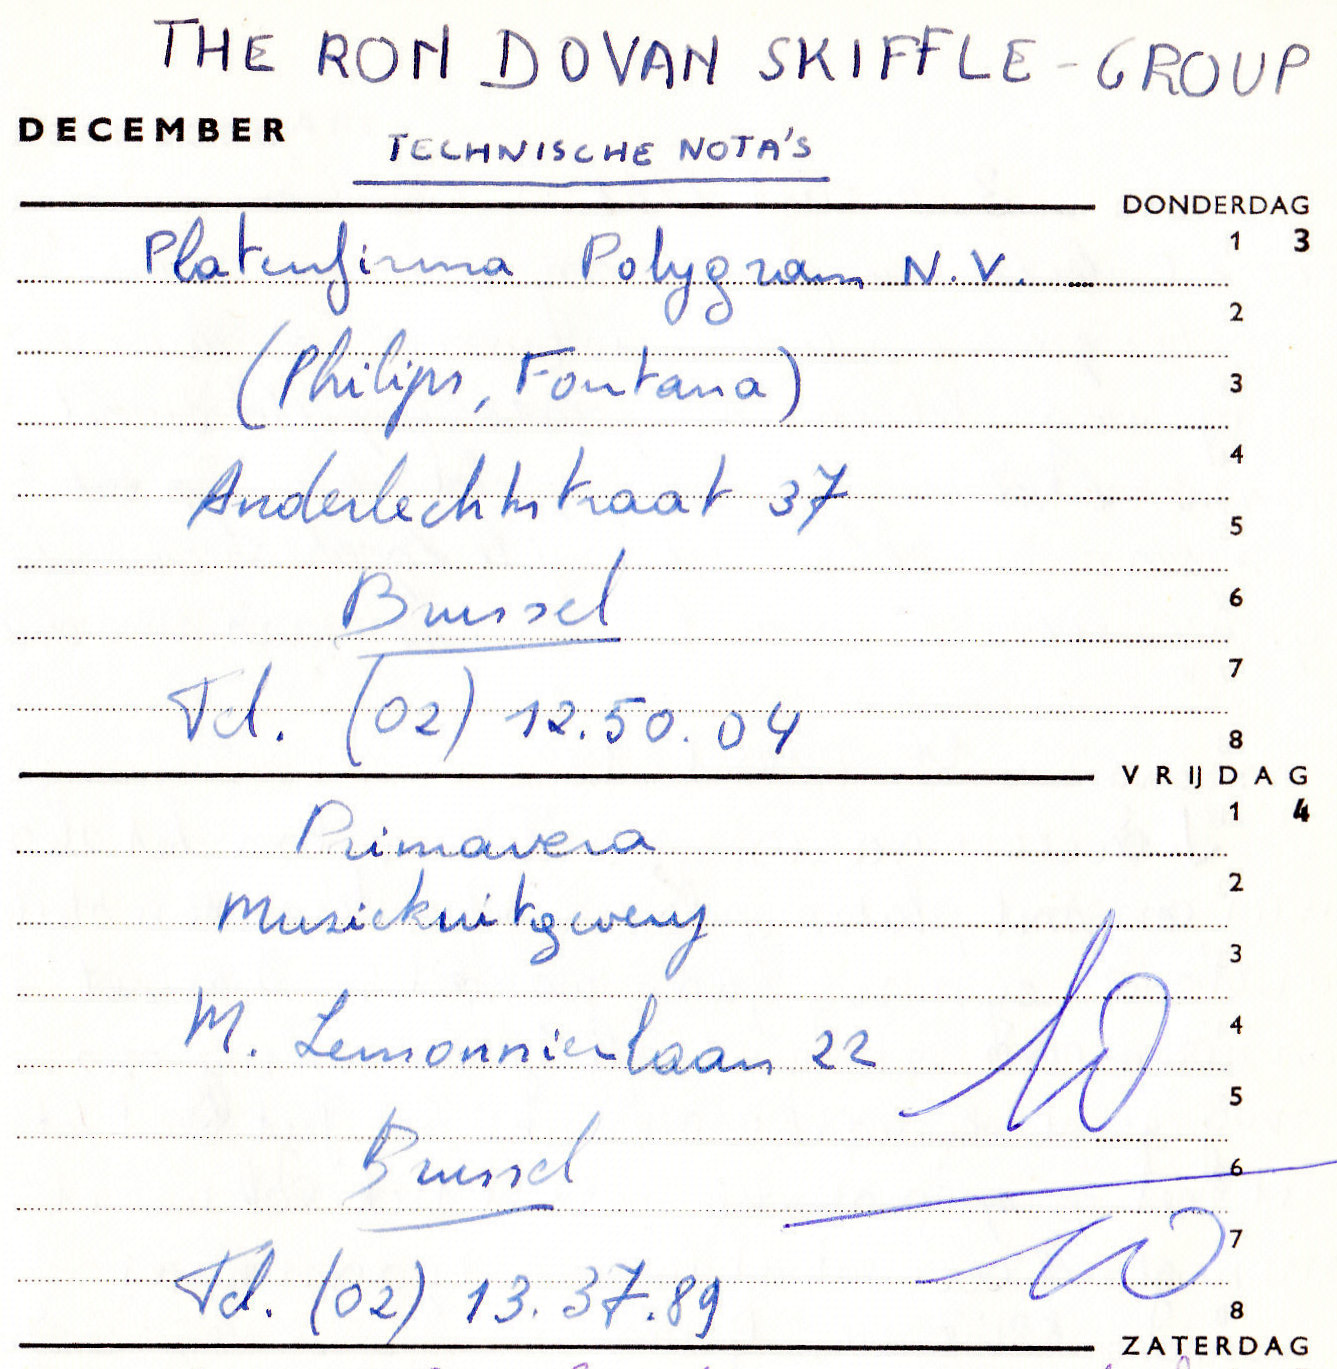 THE RON DOVAN SKIFFLE-GROUP
DECEMBER
TECHNISCHE NOTA'S
DONDERDAG
1 3
Platenfirma Polygram N.V.
2
(Philips, Fontana)
3
4
Anderlechtstraat 37
5
Brussel
6
7
Tel. (02) 12.50.04
8
VRIJDAG
1 4
Primavera
2
Muziekuitgeverij
3
M. Lemonnierlaan 22
4
5
Brussel
6
7
Tel. (02) 13.37.89
8
ZATERDAG